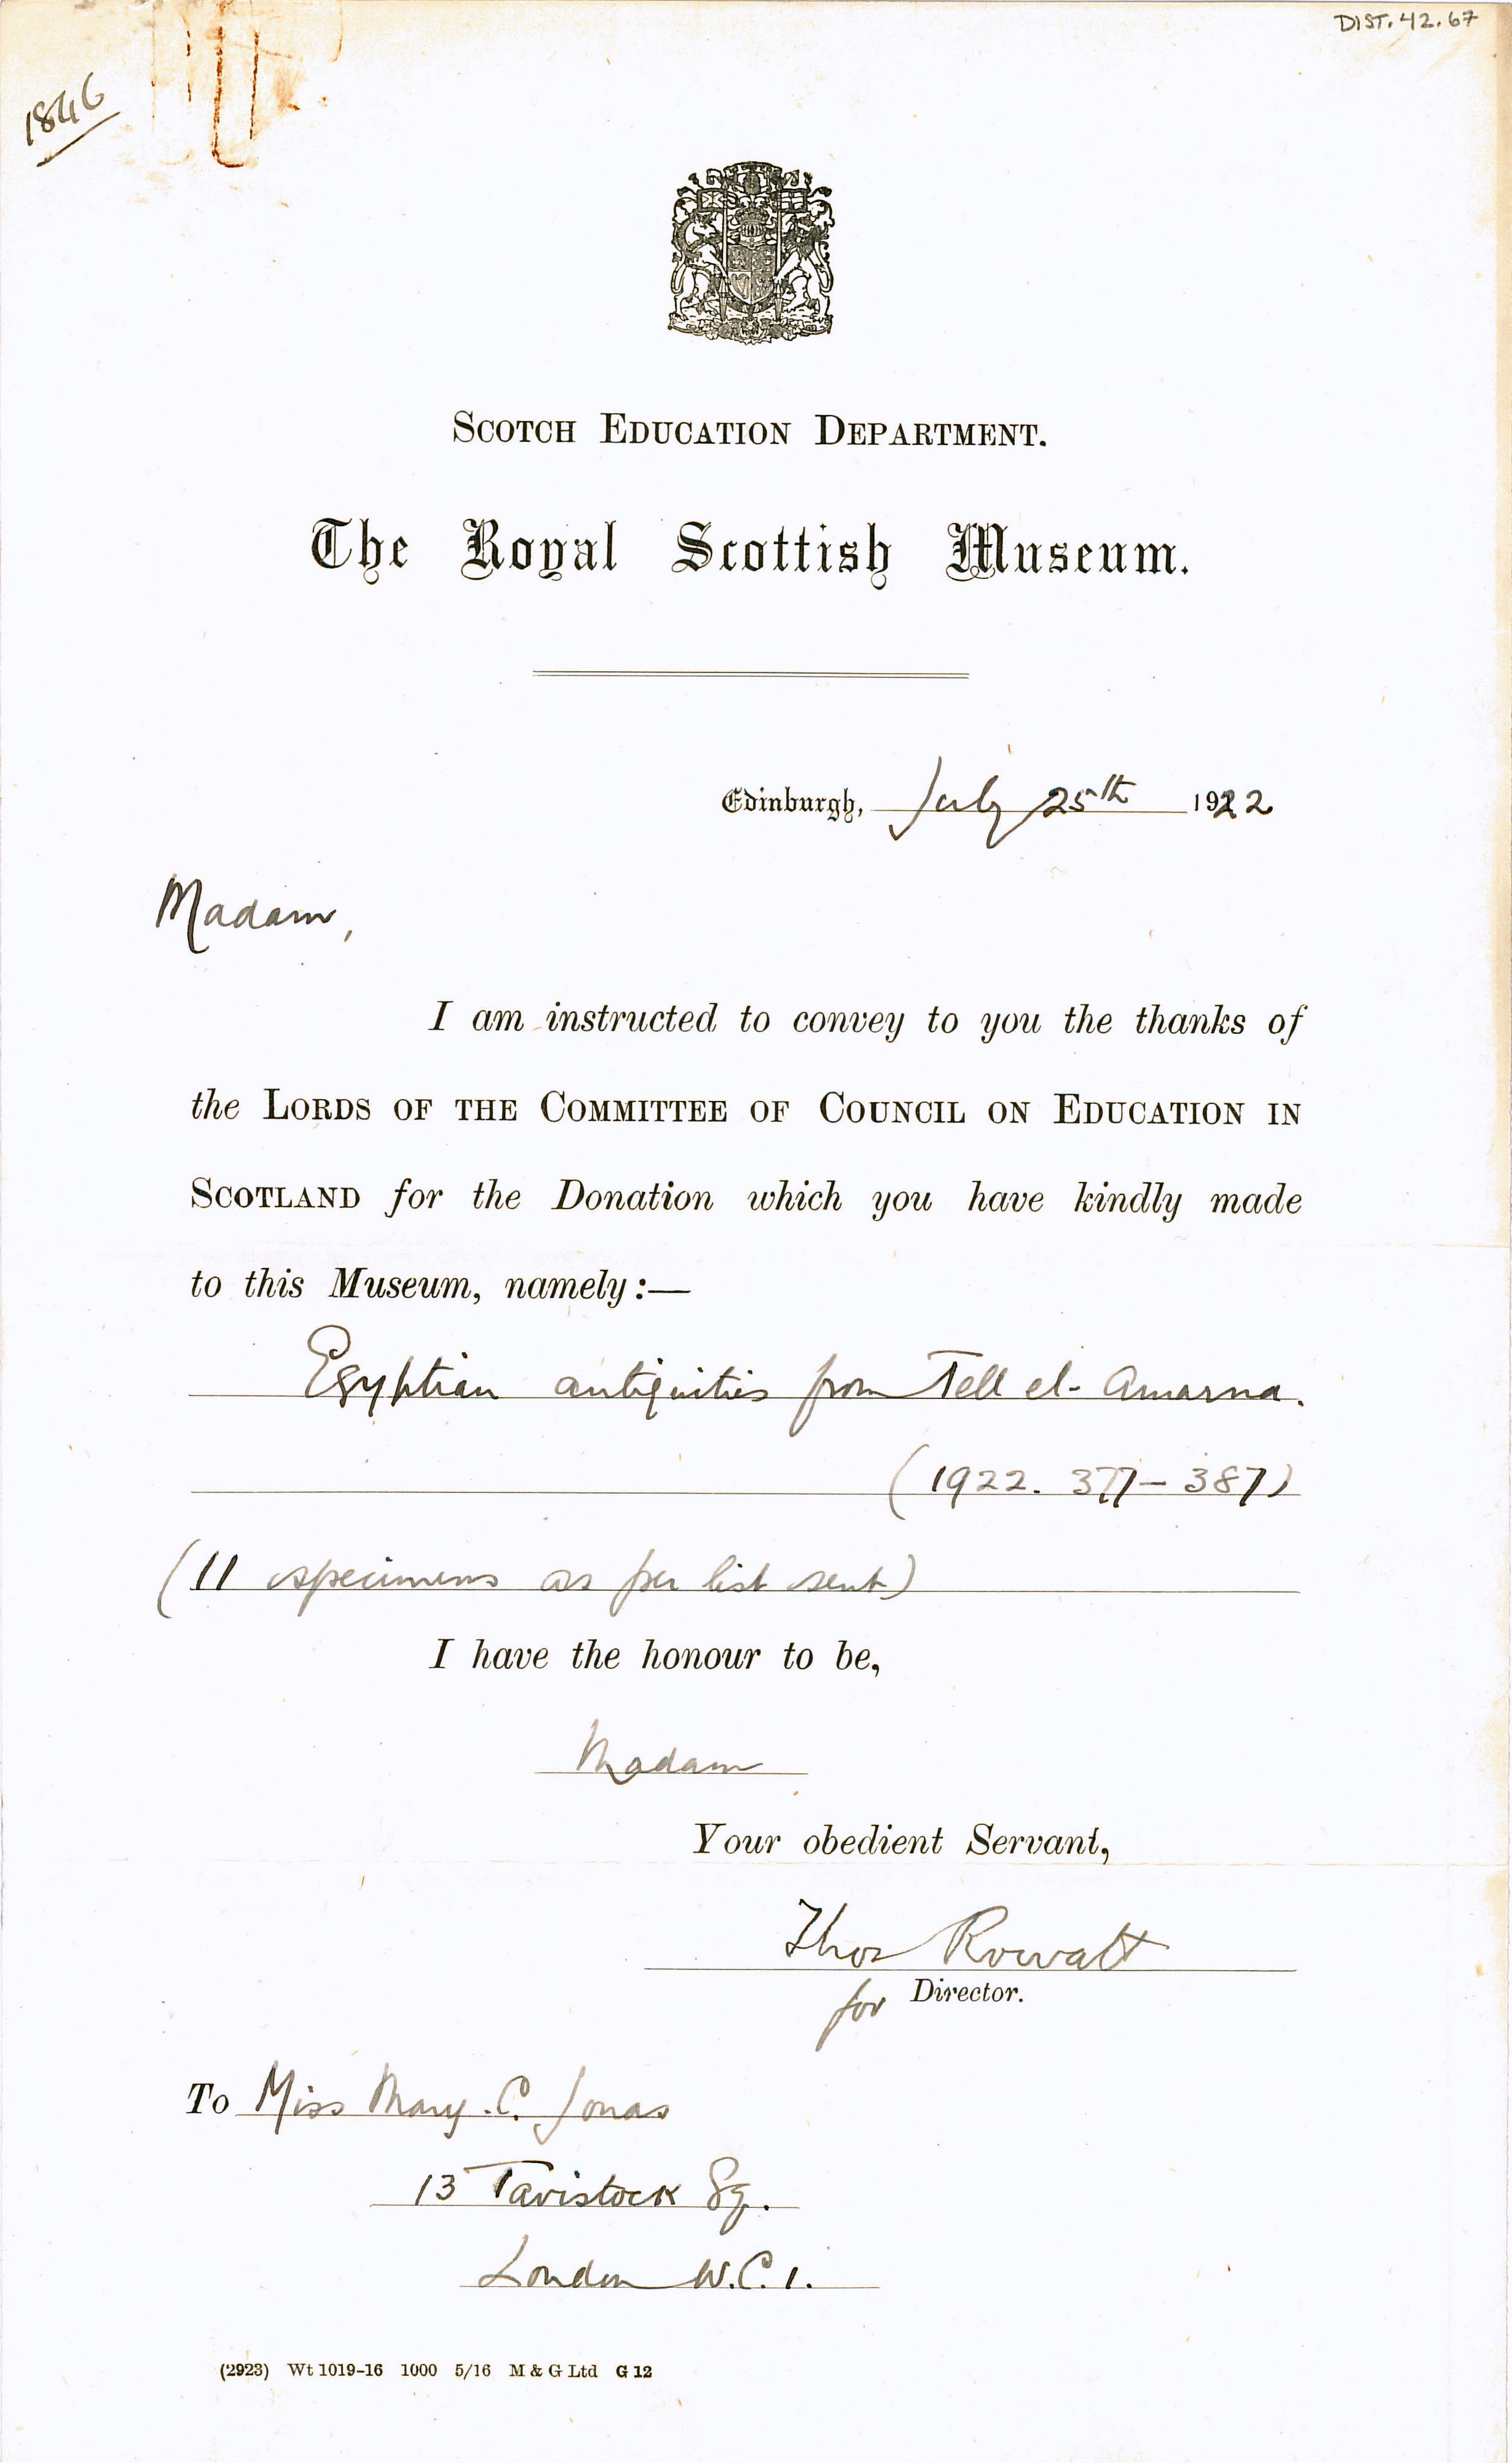 DIST.42.67
1846
SCOTCH EDUCATION DEPARTMENT.
The Royal Scottish Museum.
Edinburgh, July 25th 1922
Madam,
I am instructed to convey to you the thanks of
the LORDS OF THE COMMITTEE OF COUNCIL ON EDUCATION IN
SCOTLAND for the Donation which you have kindly made
to this Museum, namely:—
Egyptian antiquities from Tell el-Amarna.
(1922. 377–387)
(11 specimens as per list sent)
I have the honour to be,
Madam
Your obedient Servant,
Thos Rowatt
for Director.
To Miss Mary. C. Jonas
13 Tavistock Sq.
London W.C.1.
(2923) Wt 1019–16 1000 5/16 M & G Ltd G 12